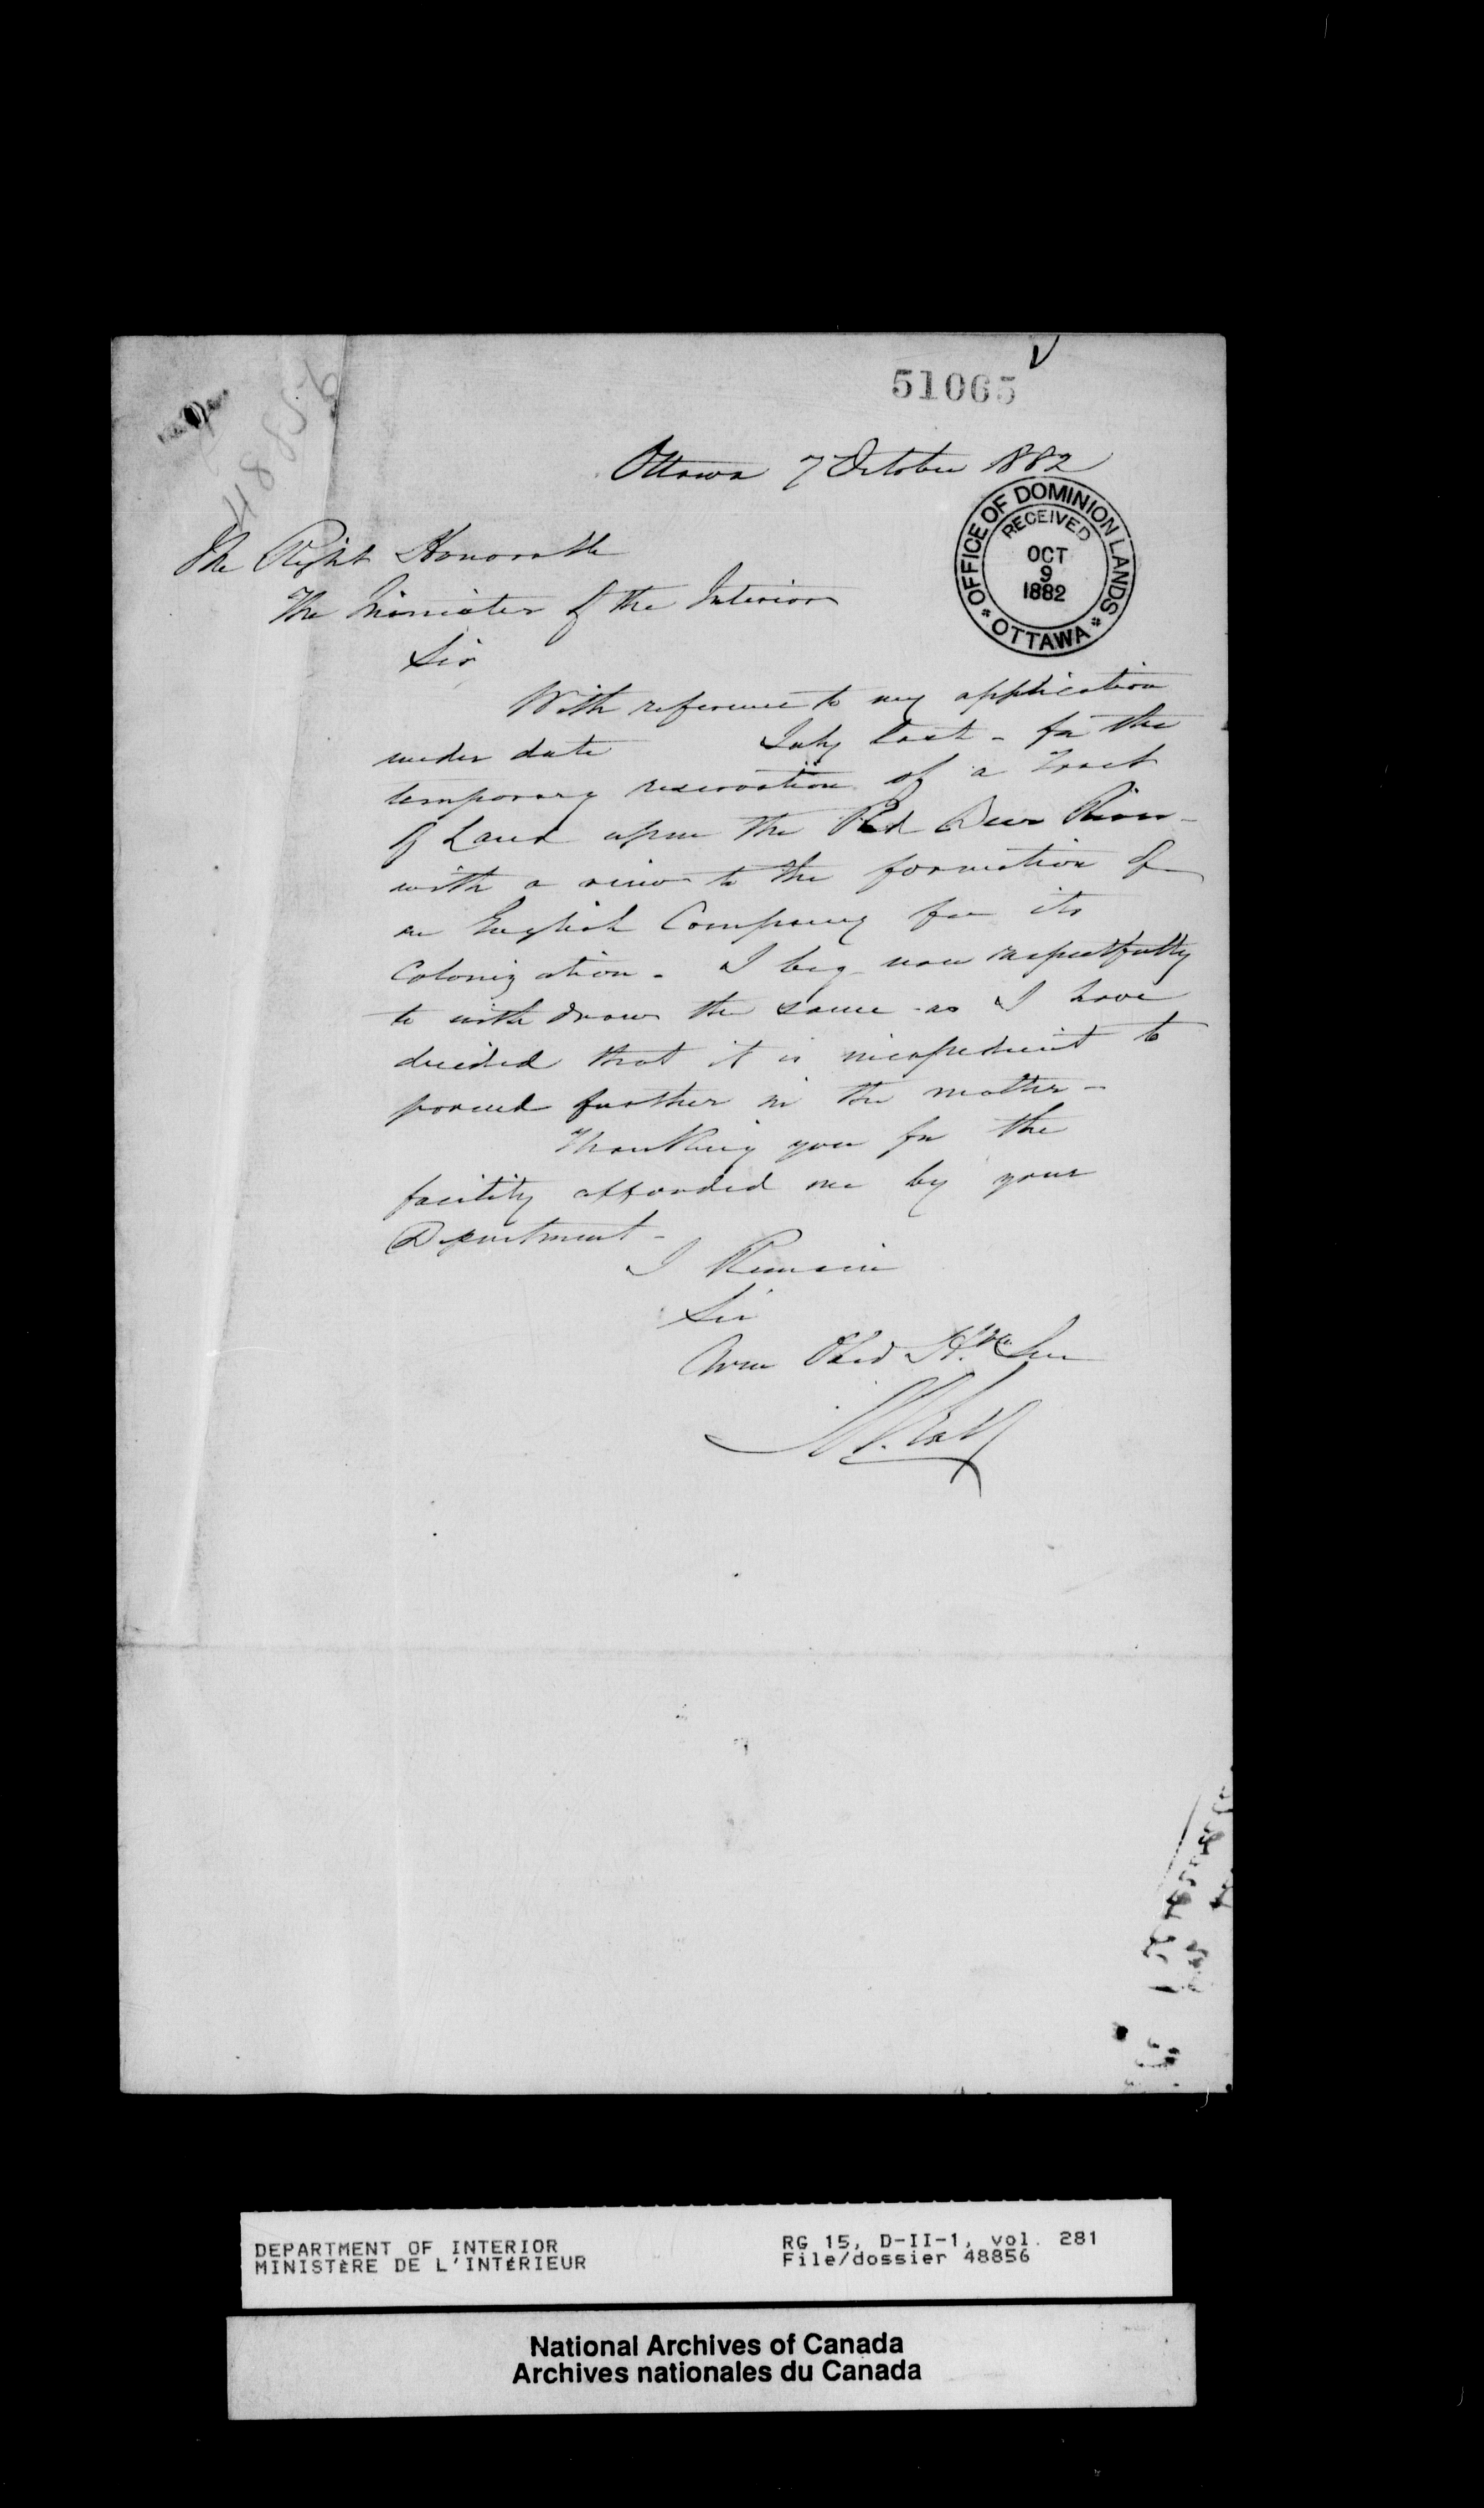 51065
48856
Ottawa 7 October 1882
OFFICE OF DOMINION LANDS
RECEIVED
OCT
9
1882
* OTTAWA *
The Right Honorable
The Minister of the Interior
Sir
With reference to my application
under date July last - for the
temporary reservation of a Tract
of Land upon the Red Deer River -
with a view to the formation of
an English Company for its
Colonization - I beg now respectfully
to withdraw the same as I have
decided that it is inexpedient to
proceed further in the matter -
Thanking you for the
facility afforded me by your
Department -
I Remain
Sir
Your Obed Hble Ser
DEPARTMENT OF INTERIOR
MINISTÈRE DE L'INTÉRIEUR
RG 15, D-II-1, vol. 281
File/dossier 48856
National Archives of Canada
Archives nationales du Canada